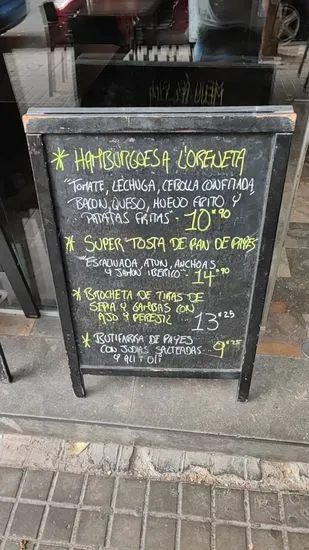 * HAMBURGUESA L'ORENETA
"TOMATE, LECHUGA, CEBOLLA CONFITADA,
BACON, QUESO, HUEVO FRITO Y
PATATAS FRITAS - 10'90
* SUPER TOSTA DE PAN DE PAYÉS
"ESCALIVADA, ATUN, ANCHOAS
Y JAMÓN IBERICO - 14'90
* BROCHETA DE TIRAS DE
SEPIA Y GAMBAS CON
AJO Y PEREJIL - 13'25
* BUTIFARRA DE PAYES
CON JUDIAS SALTEADAS - 9'25
Y ALI OLI